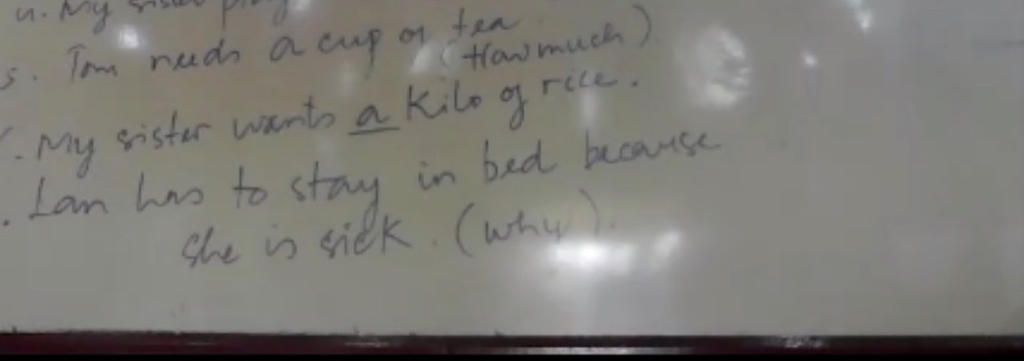 My sister play
5. Tom needs a cup of tea.
(How much)
. My sister wants a kilo of rice.
. Lan has to stay in bed because
she is sick. (why).